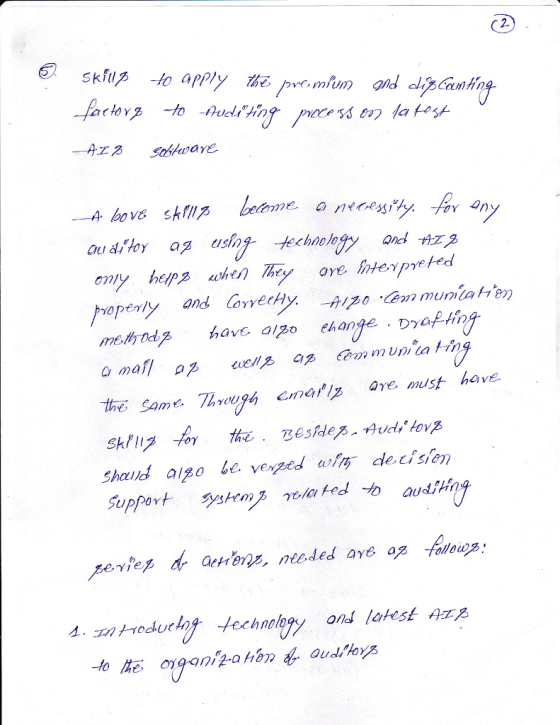 2
5. Skills to apply the premium and discounting
factors to Auditing process on latest
AIS software
Above skills become a necessity. for any
auditor as using technology and AIS
only helps when They are interpreted
properly and Correctly. Also communication
methods have also change. Drafting
a mail as wells as communicating
the same Through emails are must have
skills for the. Besides. Auditors
should also be versed with decision
support systems related to auditing
series of actions, needed are as follows:
1. Introducing technology and latest AIS
to the organization of auditors